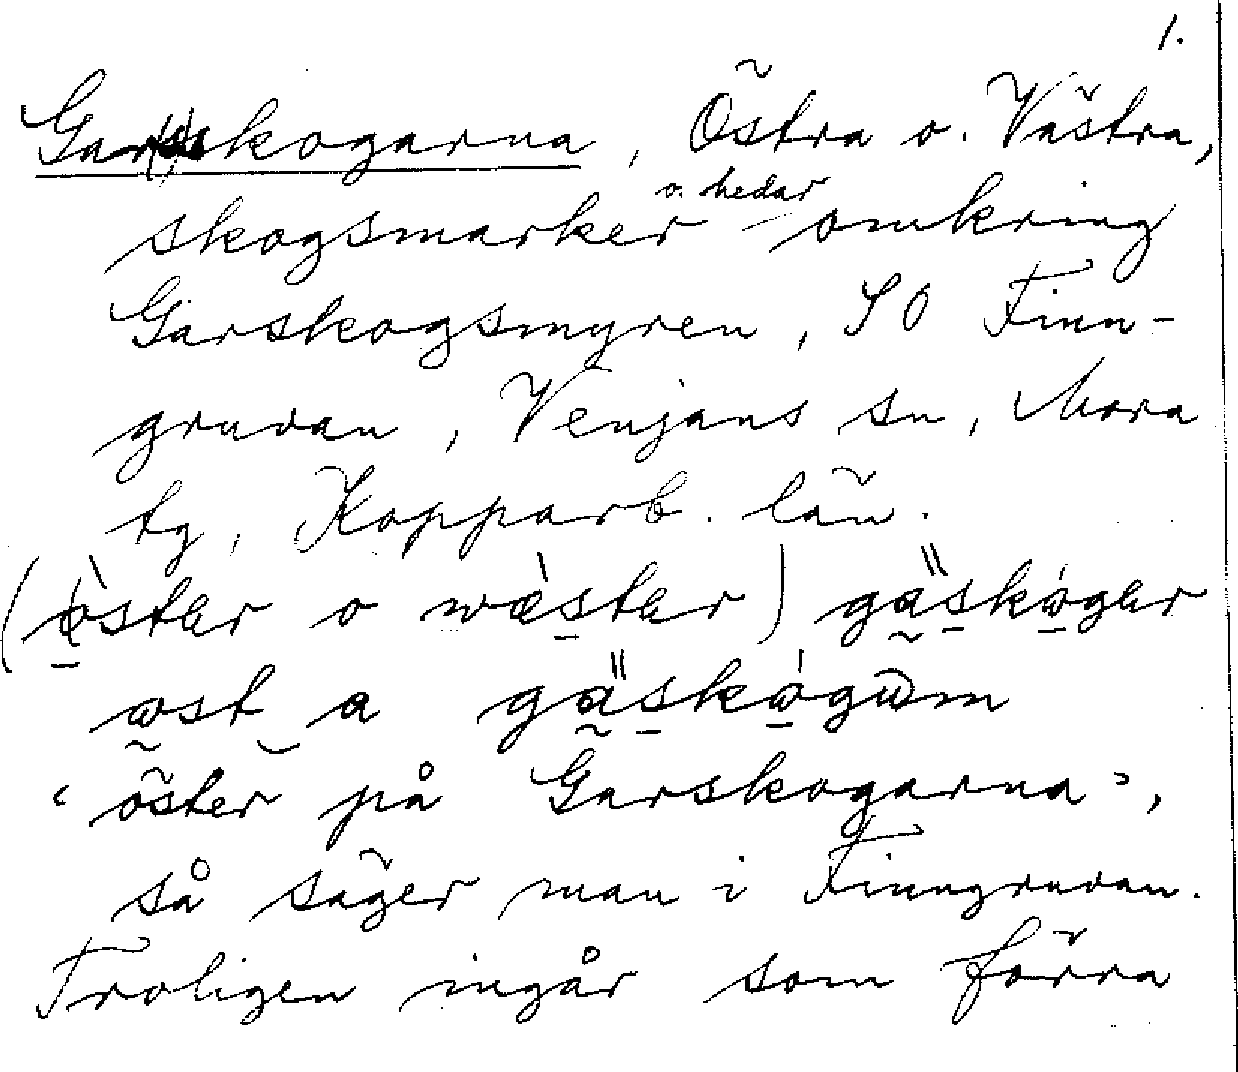 1.
Garskogarna, Östra o. Västra,
skogsmarker o. hedar omkring
Garskogsmyren, SO Finn-
gruvan, Venjans sn, Mora
tg, Kopparb. län.
(ὼstεr o wæ̀stεr) gäskógεr
ωst a gäskógωm
‘öster på Garskogarna’,
så säger man i Finngruvan.
Troligen ingår som förra